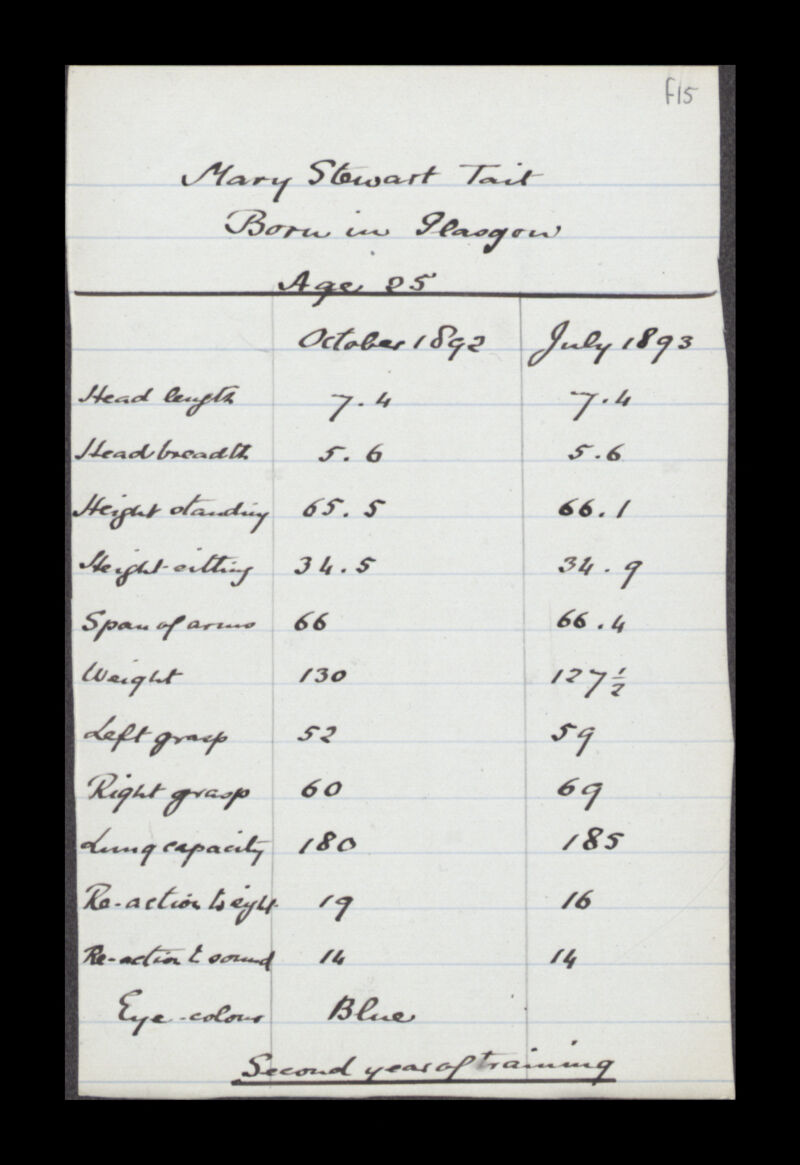 f15
Mary Stewart Tait
Born in Glasgow
Age 25
October 1892 July 1893
Head length 7.4 7.4
Head breadth 5.6 5.6
Height standing 65.5 66.1
Height sitting 34.5 34.9
Span of arms 66 66.4
Weight 130 127½
Left grasp 52 59
Right grasp 60 69
Lung capacity 180 185
Re-action to sight 19 16
Re-action to sound 14 14
Eye-colour Blue
Second year of training